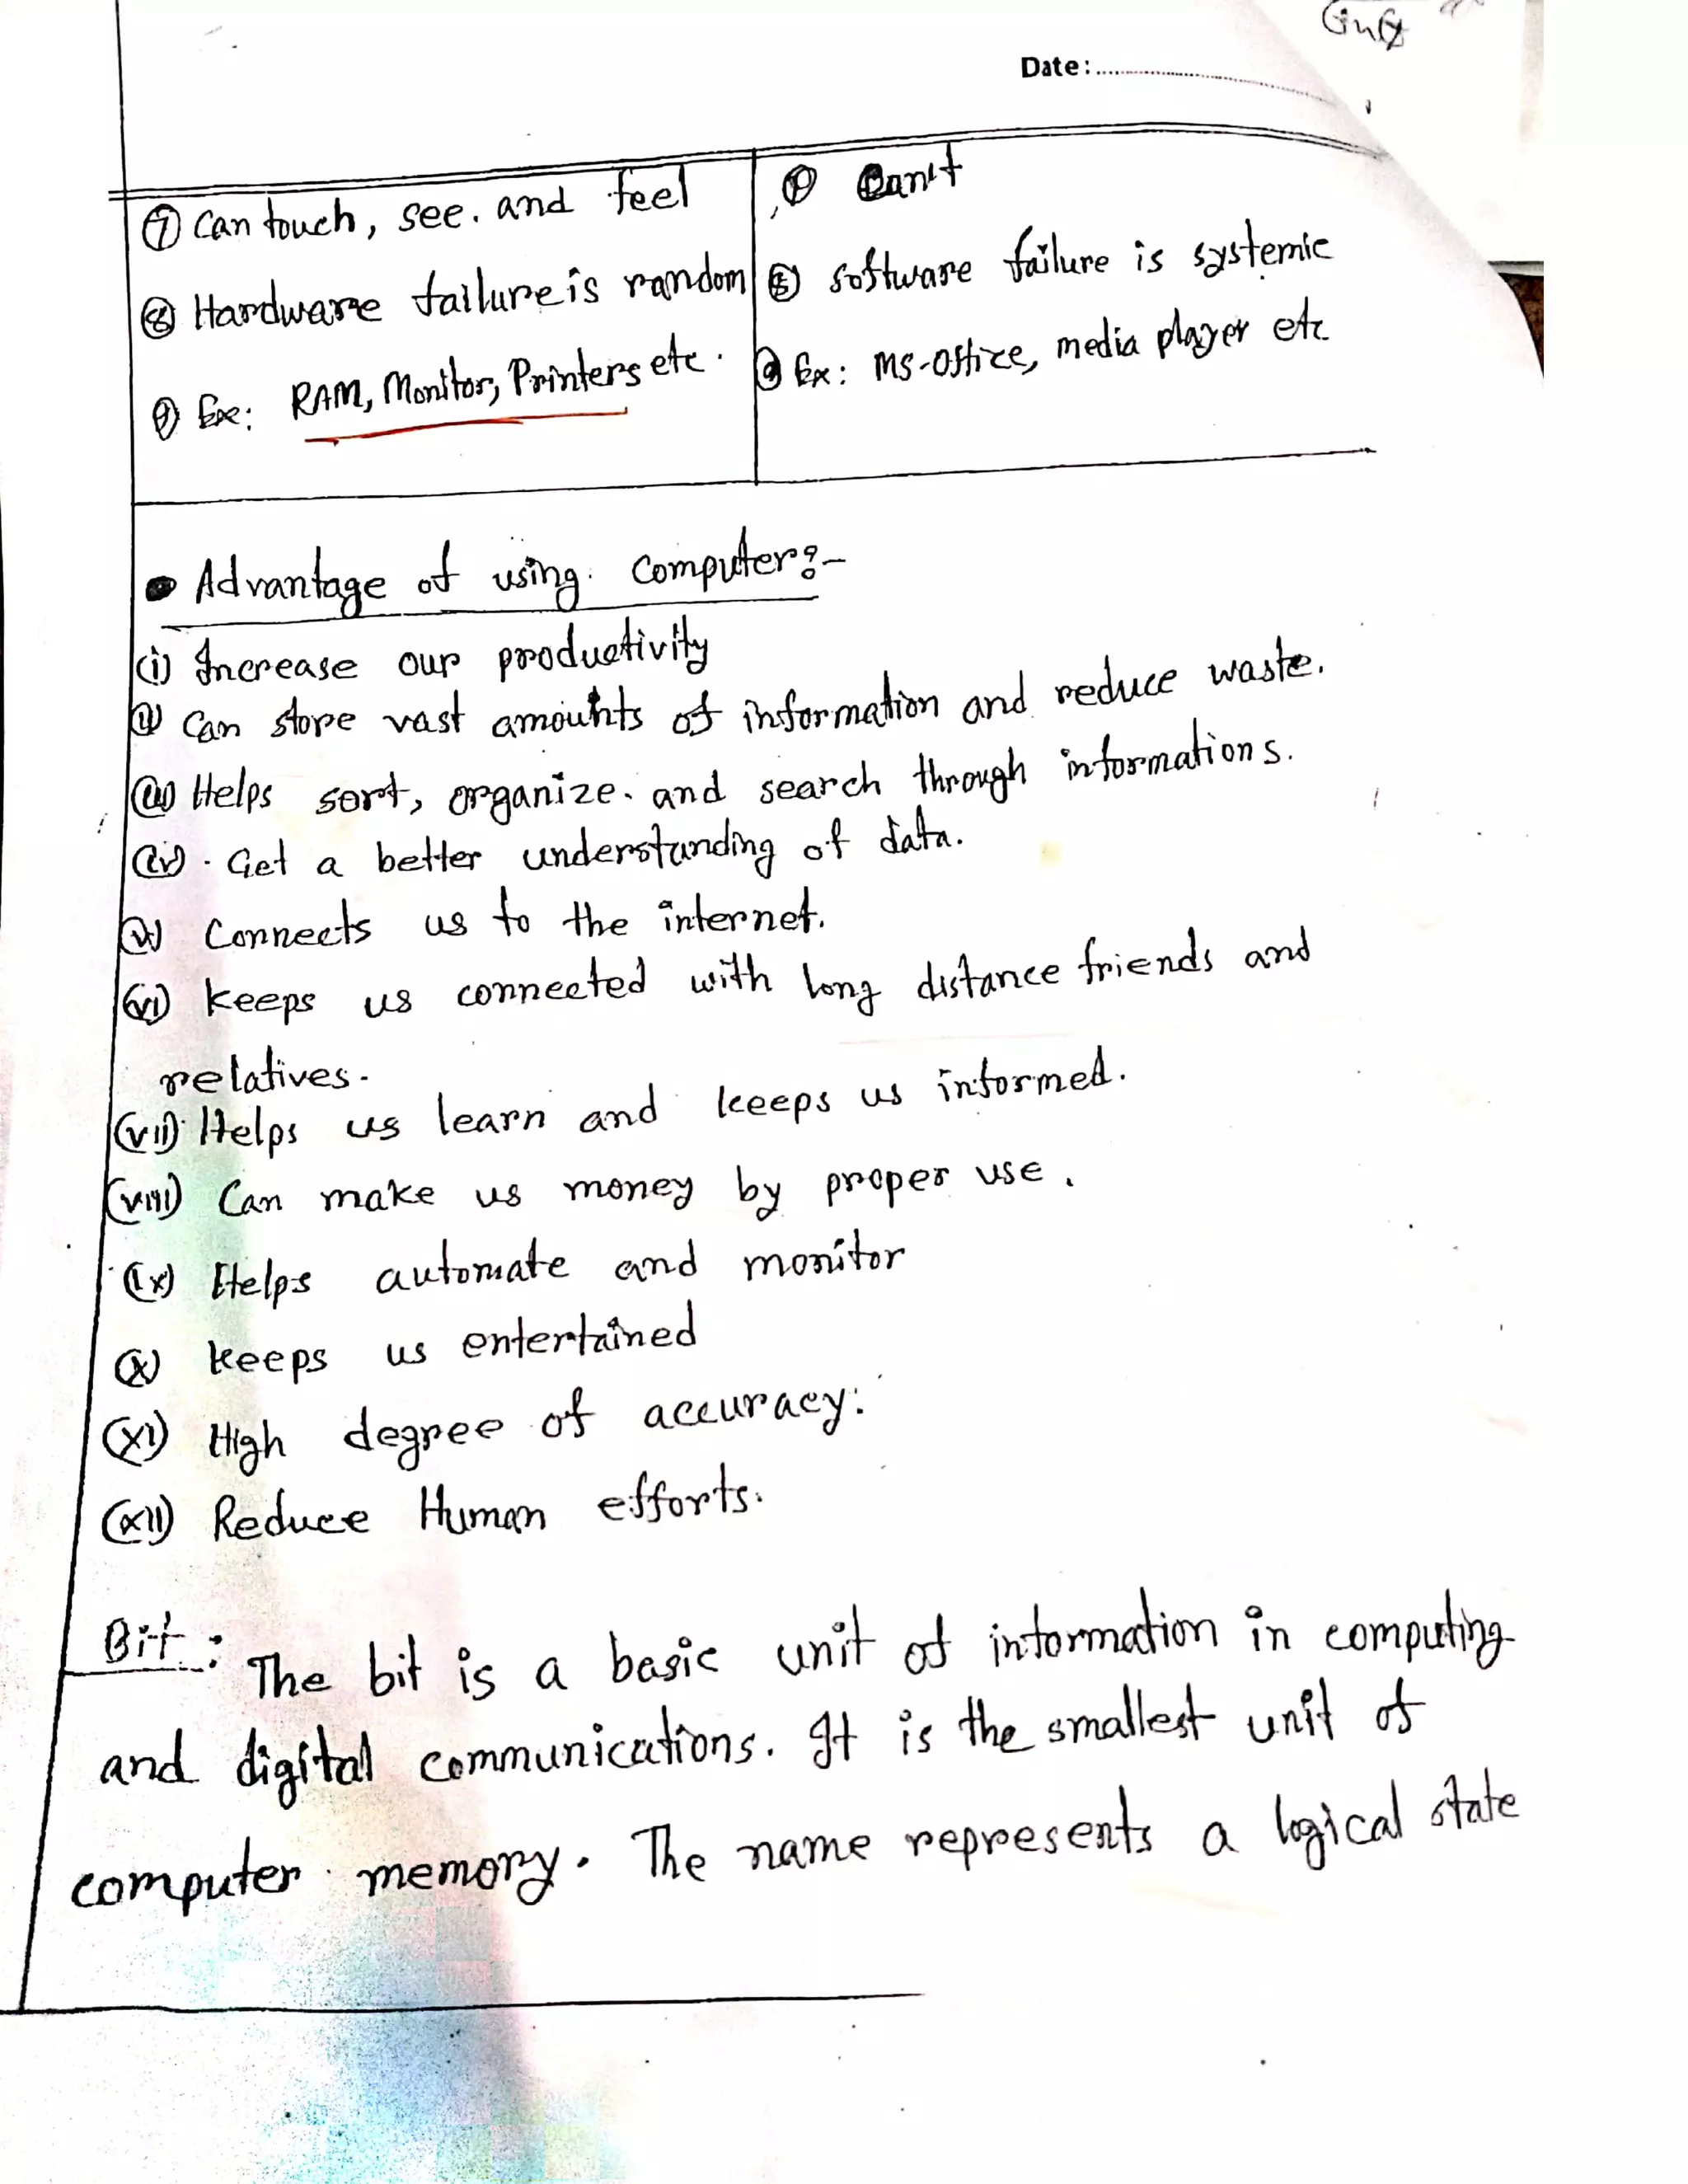 Date:
⑦ Can touch, see. and feel
⑦ Can't
⑧ Hardware failure is random
⑧ software failure is systemic
⑨ Ex: RAM, Monitor, Printers etc.
⑨ Ex: MS-Office, media player etc
• Advantage of using computer:-
(i) Increase our productivity
(ii) Can store vast amounts of information and reduce waste.
(iii) Helps sort, organize. and search through informations.
(iv) Get a better understanding of data.
(v) Connects us to the internet.
(vi) keeps us connected with long distance friends and
relatives.
(vii) Helps us learn and keeps us informed.
(viii) Can make us money by proper use.
(ix) Helps automate and monitor
(x) keeps us entertained
(xi) High degree of accuracy.
(xii) Reduce Human efforts.
Bit: The bit is a basic unit of information in computing
and digital communications. It is the smallest unit of
computer memory. The name represents a logical state